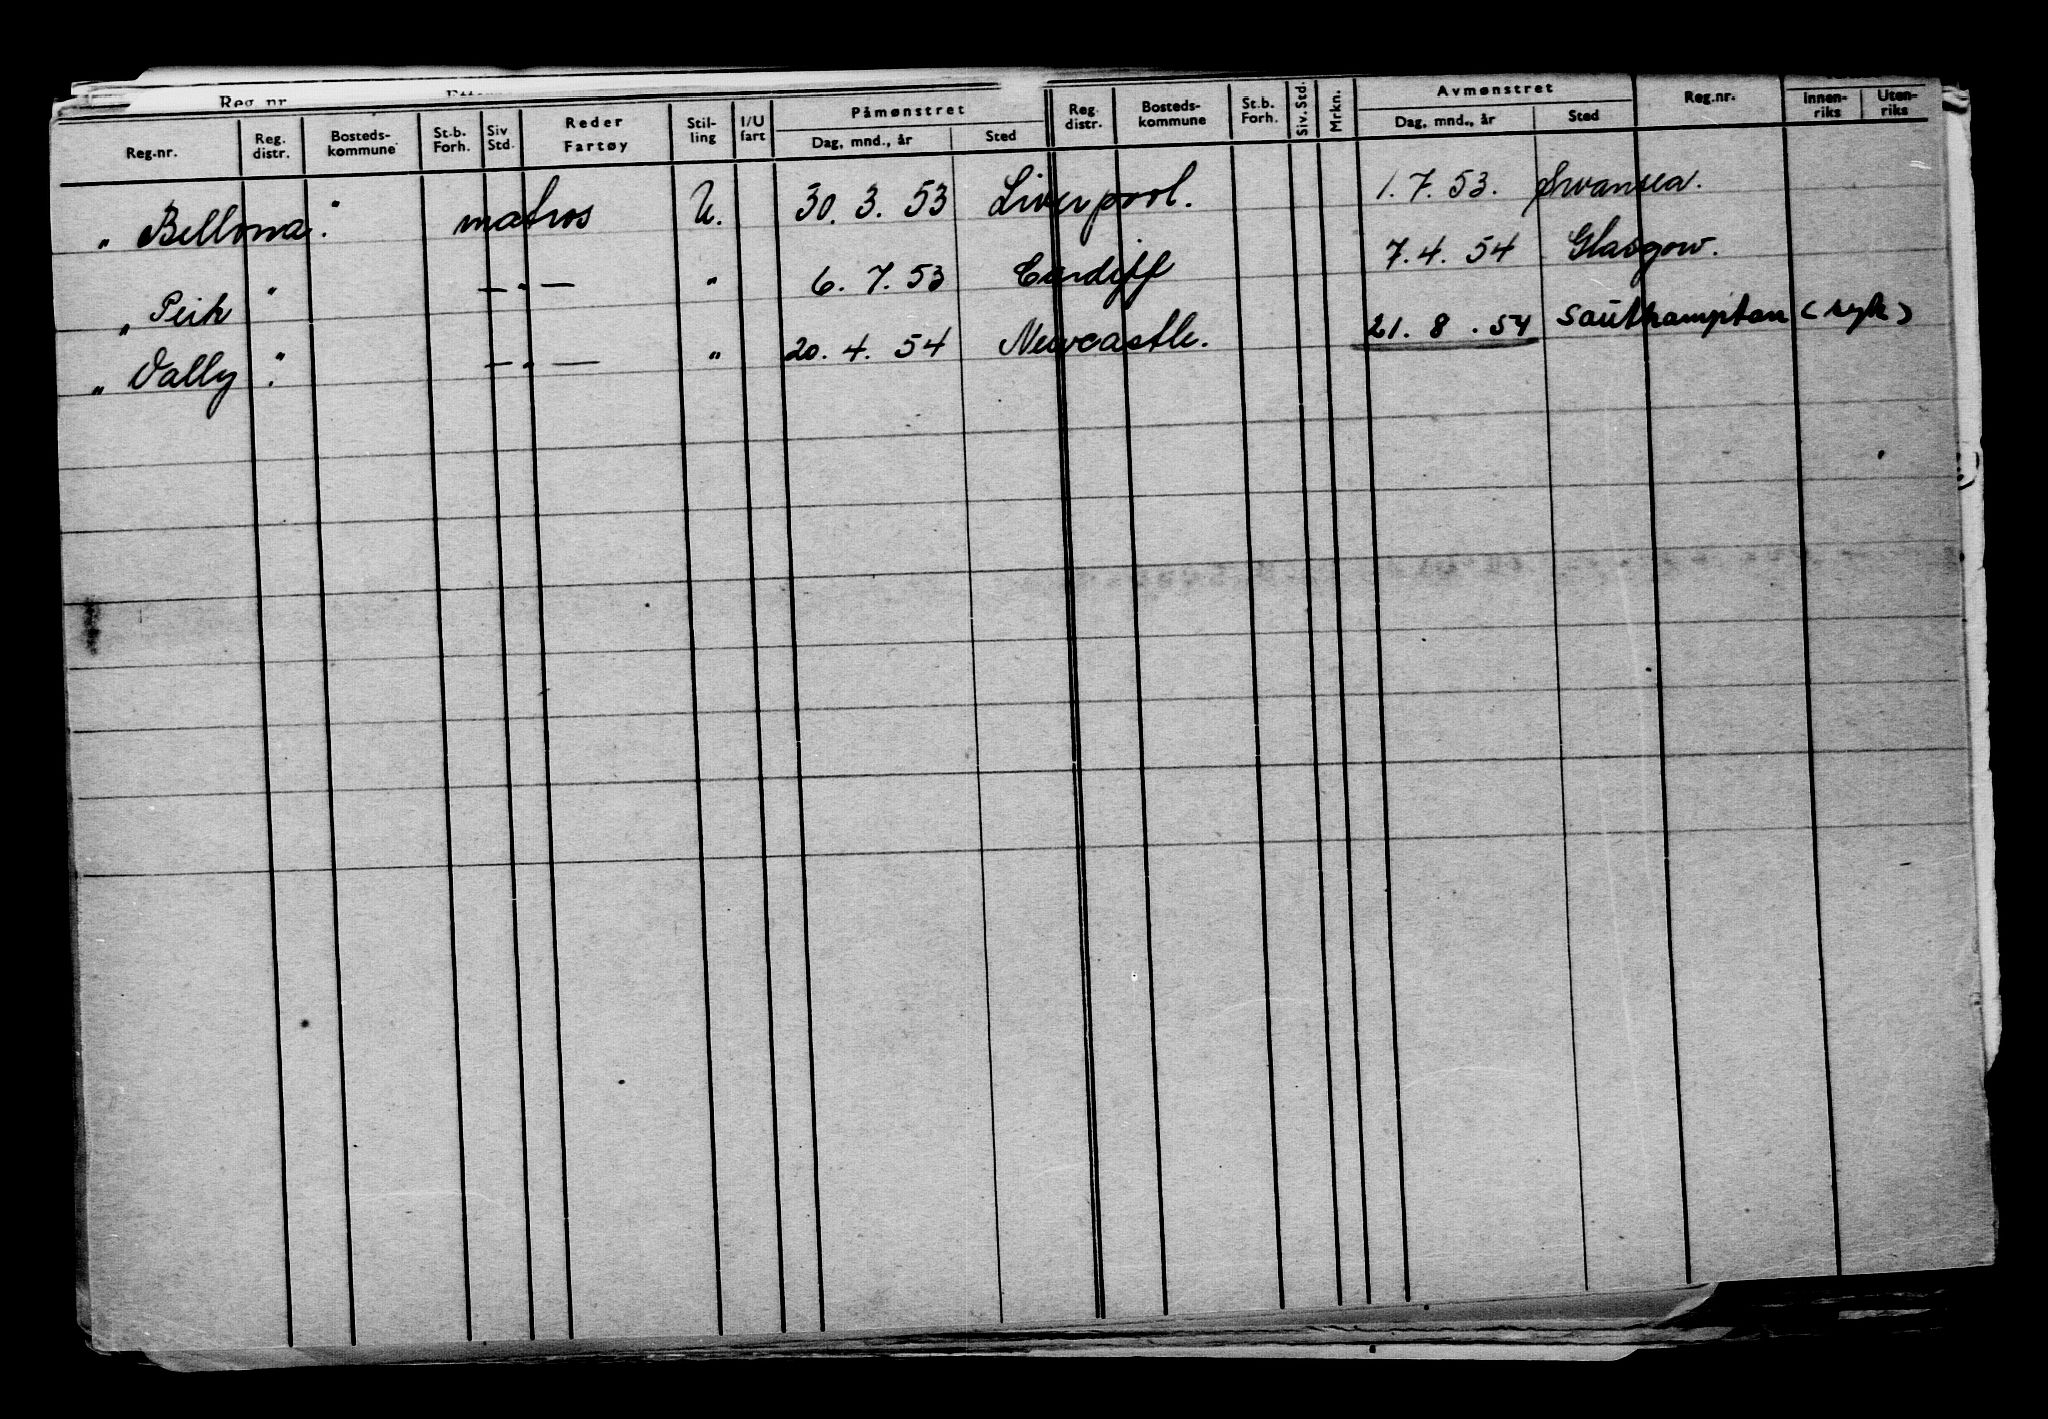 Reg. nr.
Reg.nr. Reg. distr. Bosteds-kommune St.b. Forh. Siv Std. Reder Fartøy Stil-ling I/U fart Påmønstret Dag, mnd., år Sted Reg. distr. Bosteds-kommune St.b. Forh. Siv. Std. Mrkn. Avmønstret Dag, mnd., år Sted Reg.nr. Innen-riks Uten-riks
" Bellona". matros U. 30. 3. 53 Liverpool. 1. 7. 53. Swansea.
" Peik " —"— " 6. 7. 53 Cardiff 7. 4. 54 Glasgow.
" Vally". —"— " 20. 4. 54 Newcastle. 21. 8. 54 Southampton (syk)